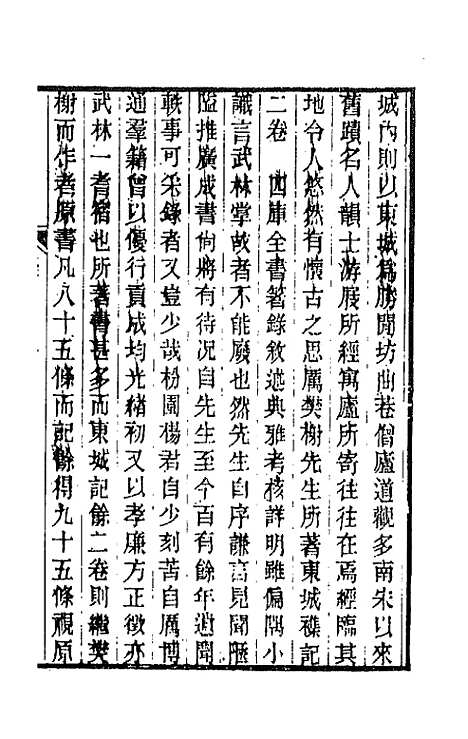 城內則以東城爲勝聞坊曲巷僧廬道觀多南宋以來
舊蹟名人韻士游屐所經寓廬所寄往往在焉經臨其
地令人悠然有懷古之思厲樊榭先生所著東城襍記
二卷　四庫全書箸錄敘述典雅考核詳明雖偏隅小
識言武林掌故者不能廢也然先生自序謙言見聞陋
隘推廣成書尙將有待況自先生至今百有餘年遺聞
軼事可采錄者又豈少哉枌園楊君自少刻苦自厲博
通羣籍曾以優行貢成均光緒初又以孝廉方正徵亦
武林一耆宿也所著書甚多而東城記餘二卷則繼樊
榭而作者原書凡八十五條而記餘得九十五條視原